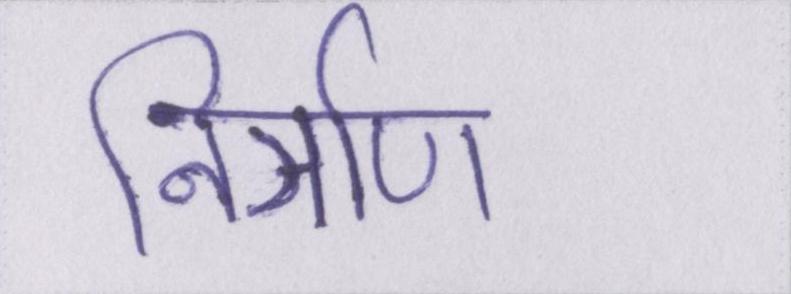 निर्माण